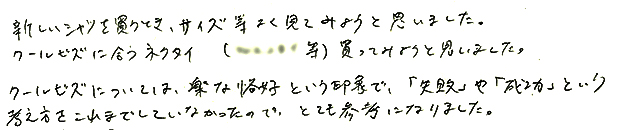 新しいシャツを買うとき、サイズ等よく見てみようと思いました。
クールビズに合うネクタイ （ 等）買ってみようと思いました。
クールビズについては、楽な恰好という印象で、「失敗」や「成功」という
考え方をこれまでしていなかったので、とても参考になりました。